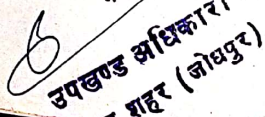 उपखण्ड अधिकारी
शहर (जोधपुर)